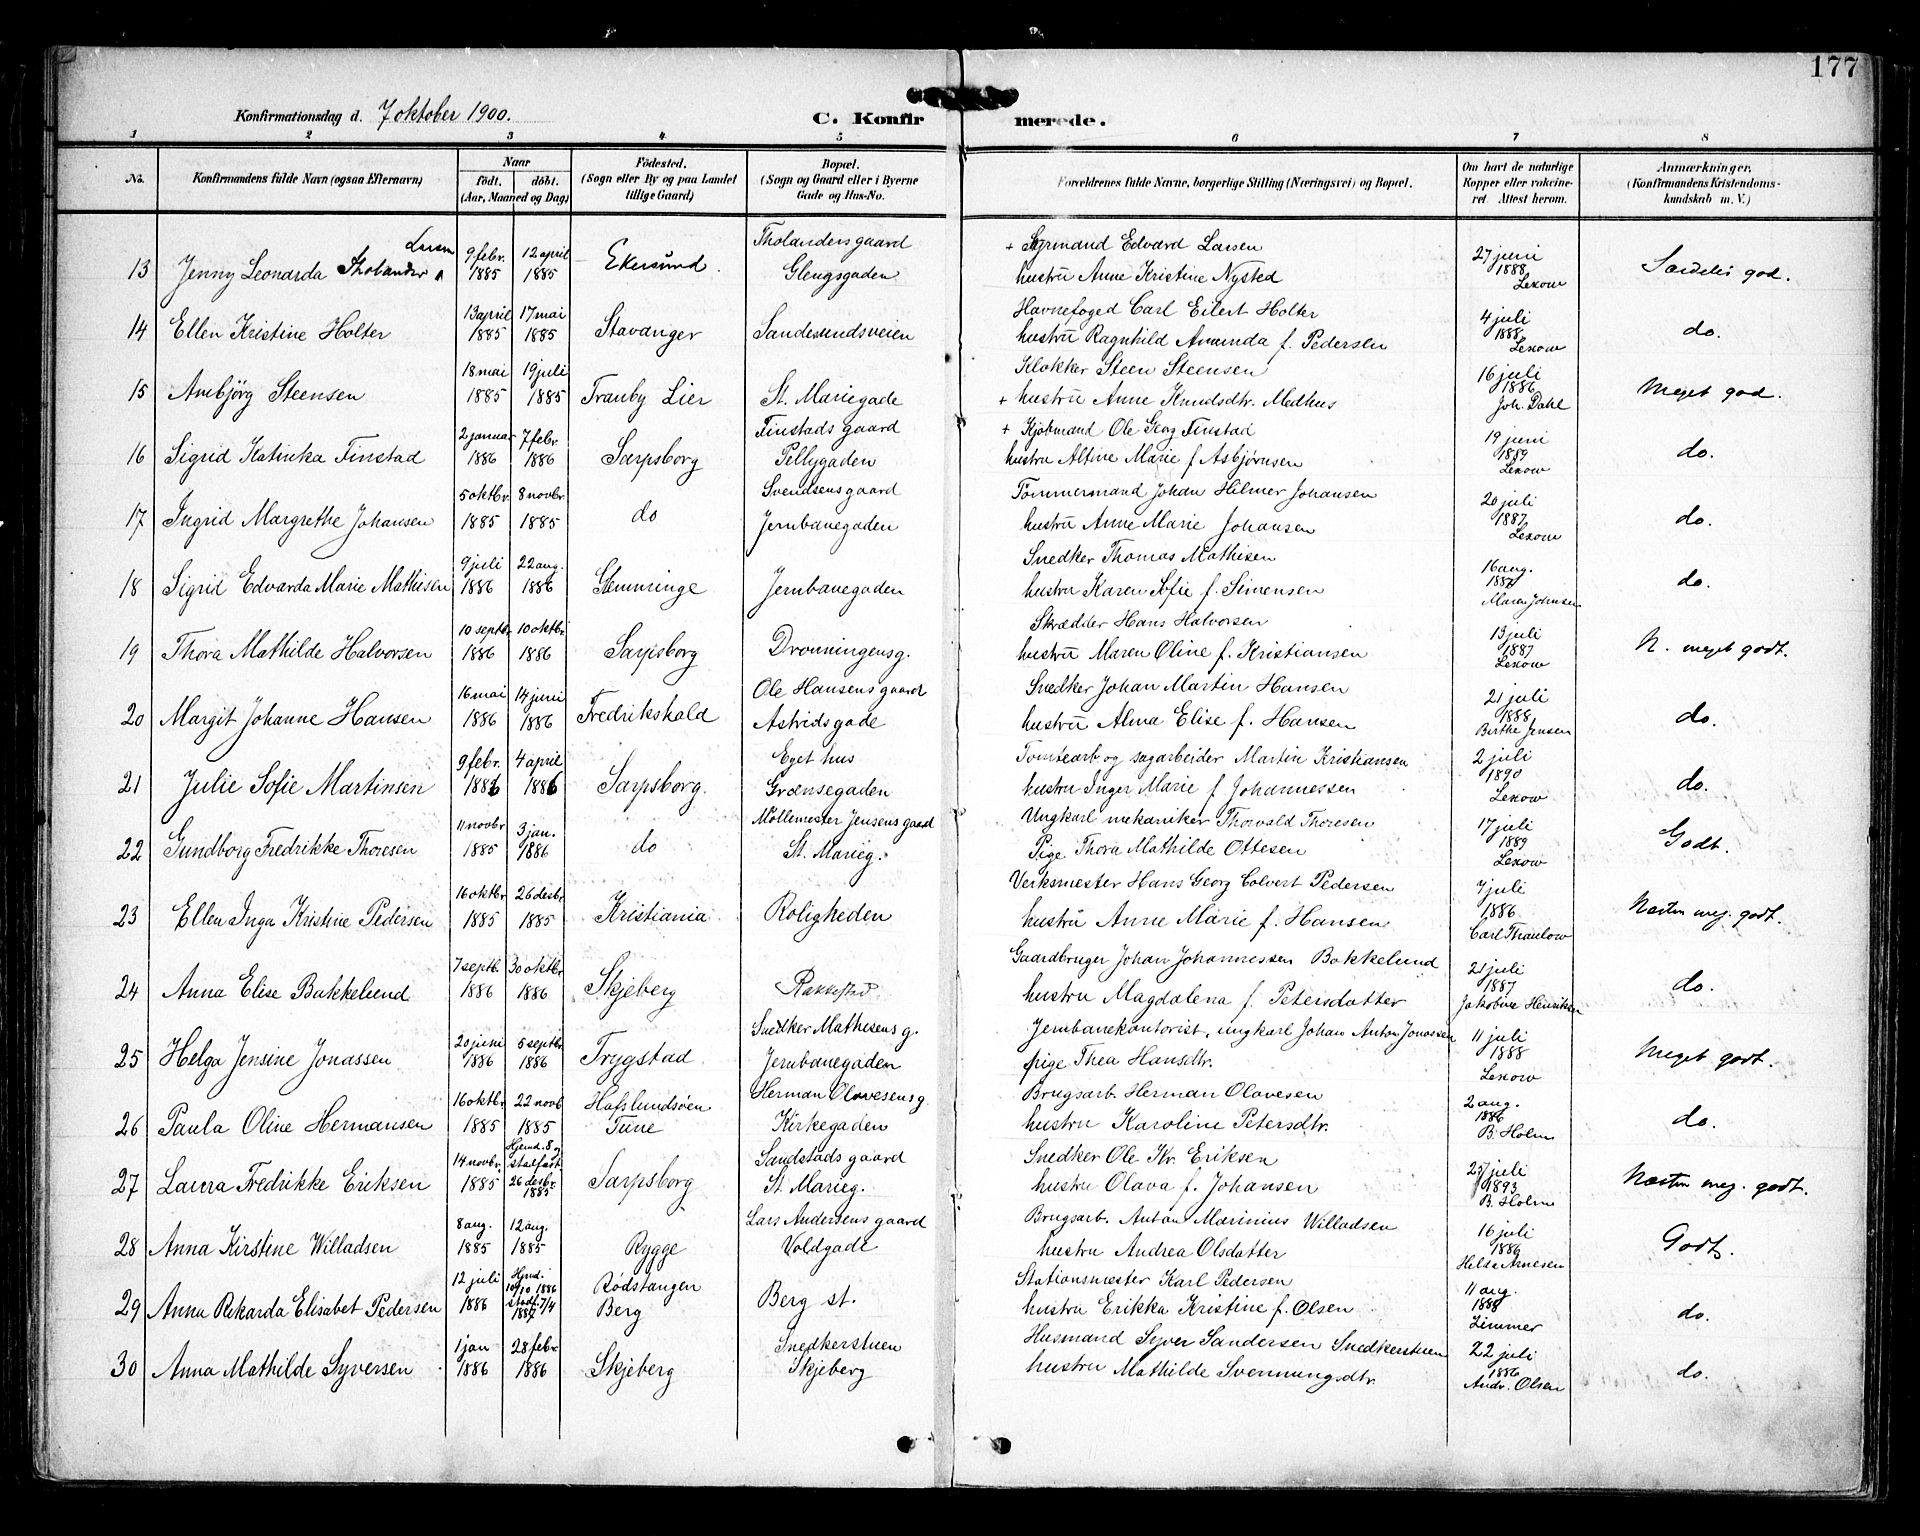 177
Konfirmationsdag d. 7 oktober 1900.
C. Konfirmerede.
1 2 3 4 5 6 7 8
No. Konfirmandens fulde Navn (ogsaa Efternavn) Naar født. døbt. (Aar, Maaned og Dag) Fødested. (Sogn eller By og paa Landet tillige Gaard) Bopæl. (Sogn og Gaard eller i Byerne Gade og Hus-No. Forældrenes fulde Navne, borgerlige Stilling (Næringsvei) og Bopæl. Om havt de naturlige Kopper eller vakcineret. Attest herom. Anmærkninger. (Konfirmandens Kristendomskundskab m. V.)
Larsen 9 febr. 12 april Tholanders gaard + Styrmand Edvard Larsen 27 juni
13 Jenny Leonarda Tholander 1885 1885 Ekersund. Glengsgaden hustru Anne Kristine Nysted 1888 Lexow Særdeles god.
13 april 17 mai Havnefoged Carl Eilert Holter 4 juli
14 Ellen Kristine Holter 1885 1885 Stavanger Sandesundsveien hustru Ragnhild Amunda f. Pedersen 1888 Lexow do.
18 mai 19 juli Klokker Steen Steensen 16 juli
15 Ambjörg Steensen 1885 1885 Tranby Lier St. Mariegade + hustru Anne Knudsdtr. Medhus 1886 Joh. Dahl Meget god.
2 januar 7 febr. Finstads gaard + Kjøbmand Ole Georg Finstad 19 juni
16 Sigrid Katinka Finstad 1886 1886 Sarpsborg Pellygaden hustru Altine Marie f Asbjørnsen 1889 Lexow do.
5 oktbr. 8 novbr. Svendsens gaard Tømmermand Johan Hilmer Johansen 20 juli
17 Ingrid Margrethe Johansen 1885 1885 do Jernbanegaden hustru Anne Marie Johansen 1887 Lexow do.
9 juli 22 aug. Snedker Thomas Mathisen 16 aug.
18 Sigrid Edvarda Marie Mathisen 1886 1886 Glemminge Jernbanegaden hustru Karen Sofie f. Simensen 1887 Maren Johnsen do.
10 septbr. 10 oktbr. Skrædder Hans Halvorsen 13 juli
19 Thora Mathilde Halvorsen 1886 1886 Sarpsborg Dronningensg. hustru Maren Oline f. Kristiansen 1887 Lexow N. meget godt.
16 mai 14 juni Ole Hansens gaard Snedker Johan Martin Hansen 21 juli
20 Margit Johanne Hansen 1886 1886 Fredrikshald Astridsgade hustru Alma Elise f. Hansen 1888 Birthe Jensen do.
9 febr. 4 april Eget hus Tomtearb og sagarbeider Martin Kristiansen 2 juli
21 Julie Sofie Martinsen 1886 1886 Sarpsborg. Grænsegaden hustru Inger Marie f Johannessen 1890 Lexow do.
11 novbr 3 jan. Möllemester Jensens gaard Ungkarl mekaniker Thorvald Thoresen 17 juli
22 Gundborg Fredrikke Thoresen 1885 1886 do St. Marieg. Pige Thora Mathilde Ottesen 1889 Lexow Godt.
16 oktbr 26 desbr. Verksmester Hans Georg Colvert Pedersen 7 juli
23 Ellen Inga Kristine Pedersen 1885 1885 Kristiania Roligheden hustru Anne Marie f. Hansen 1886 Carl Thaulow Næsten meg. godt.
7 septb. 30 oktbr Gaardbruger Johan Johannessen Bakkelund 21 juli
24 Anna Elise Bakkelund 1886 1886 Skjeberg Rakkestad hustru Magdalena f. Petersdatter 1887 Jakobine Henriksen do.
20 juni 5 septbr Snedker Mathisens g. Jernbanekontorist, ungkarl Johan Anton Jonassen 11 juli
25 Helga Jensine Jonassen 1886 1886 Trygstad Jernbanegaden pige Thea Hansdtr. 1888 Lexow Meget godt.
16 oktbr 22 novb Hafslundsöen Herman Olavesens g. Brugsarb. Herman Olavesen 2 aug.
26 Paula Oline Hermansen 1885 1885 Tune Kirkegaden hustru Karoline Petersdtr. 1886 B. Holm do.
14 novbr. Hjemd. 8 og stadfæst Sandstads gaard Snedker Ole Kr. Eriksen 25 juli
27 Laura Fredrikke Eriksen 1885 26 desbr. 1885 Sarpsborg St. Marieg. hustru Olava f. Johansen 1893 B. Holm Næsten meg. godt.
8 aug. 12 aug. Lars Andersens gaard Brugsarb. Anton Marinius Willadsen 16 juli
28 Anna Kirstine Willadsen 1885 1885 Rygge Voldgade hustru Andrea Olsdatter 1886 Hilda Arnesen Godt.
12 juli Hjmd. 10/10 1886 Rödstangen Stationsmester Karl Pedersen 11 aug.
29 Anna Rikarda Elisabet Pedersen 1886 stadf. 7/4 1887 Berg Berg st. hustru Erikka Kristine f. Olsen 1888 Zimmer do.
1 jan 28 febr. Snedkerstuen Husmand Syver Sandersen Snedkerstuen 22 juli
30 Anna Mathilde Syversen 1886 1886 Skjeberg Skjeberg hustru Mathilde Svenningsdtr. 1886 Andr. Olsen do.